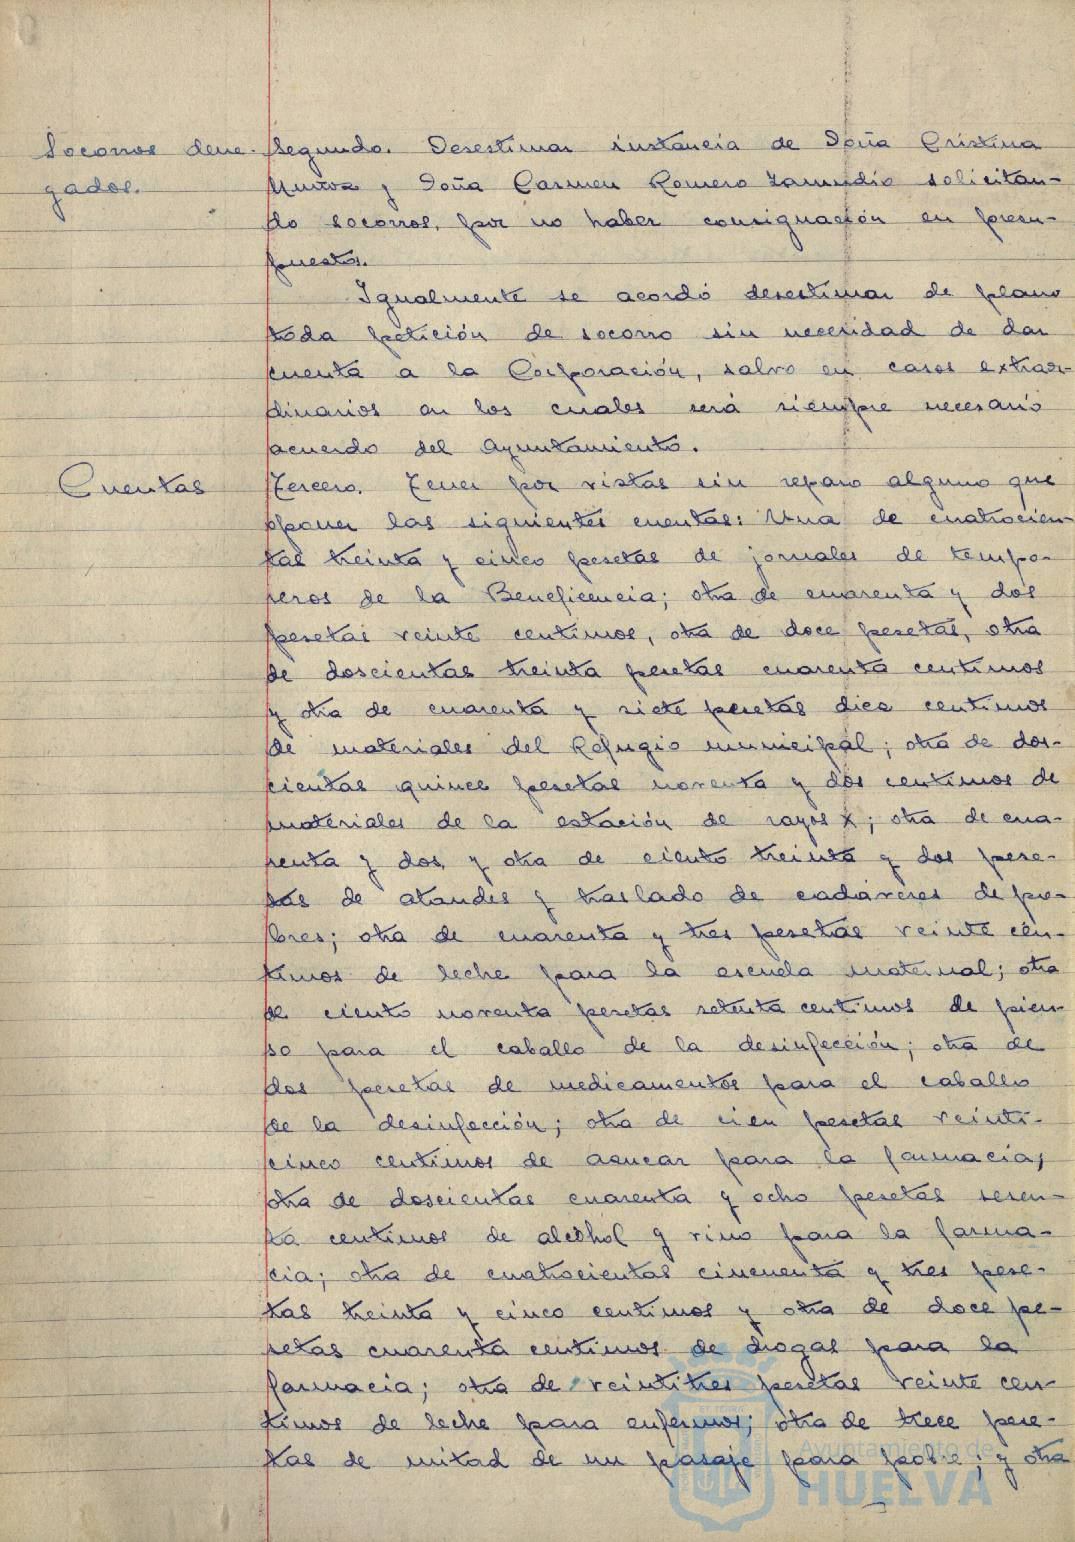 Socorros dene-
gados.
Segundo. Desestimar instancia de Doña Cristina
Muñoz y Doña Carmen Romero Zamudio solicitan-
do socorros, por no haber consignación en presu-
puestos.
Igualmente se acordó desestimar de plano
toda petición de socorro sin necesidad de dar
cuenta a la Corporación, salvo en casos extraor-
dinarios en los cuales será siempre necesario
acuerdo del Ayuntamiento.
Cuentas
Tercero. Tener por vistas sin reparo alguno que
oponer las siguientes cuentas: Una de cuatrocien-
tas treinta y cinco pesetas de jornales de tempo-
reros de la Beneficencia; otra de cuarenta y dos
pesetas veinte centimos, otra de doce pesetas, otra
de doscientas treinta pesetas cuarenta centimos
y otra de cuarenta y siete pesetas diez centimos
de materiales del Refugio municipal; otra de dos-
cientas quince pesetas noventa y dos centimos de
materiales de la estación de rayos X; otra de cua-
renta y dos, y otra de ciento treinta y dos pese-
tas de ataudes y traslado de cadáveres de po-
bres; otra de cuarenta y tres pesetas veinte cén-
timos de leche para la escuela maternal; otra
de ciento noventa pesetas setenta centimos de pien-
so para el caballo de la desinfección; otra de
dos pesetas de medicamentos para el caballo
de la desinfección; otra de cien pesetas veinti-
cinco centimos de azucar para la farmacia;
otra de doscientas cuarenta y ocho pesetas sesen-
ta centimos de alcohol y vino para la farma-
cia; otra de cuatrocientas cincuenta y tres pese-
tas treinta y cinco centimos y otra de doce pe-
setas cuarenta centimos de drogas para la
farmacia; otra de veintitres pesetas veinte cen-
timos de leche para enfermos; otra de trece pese-
tas de mitad de un pasaje para pobre; y otra
Ayuntamiento de
HUELVA